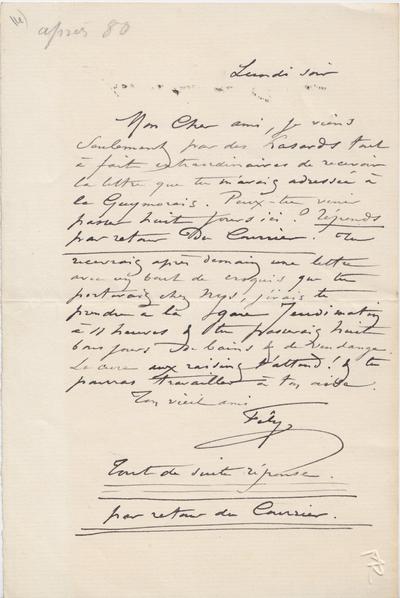 14) après 80
Lundi soir
Mon Cher ami, je viens
seulement par des hasards tout
à fait extraordinaires de recevoir
la lettre que tu m'avais adressée à
la Guymorais. Peux-tu venir
passer huit jours ici ? Réponds
par retour du Courrier. Tu
recevrais après demain une lettre
avec un bout de croquis que tu
porterais chez Nys, j'irais te
prendre à la gare Jeudi matin
à 11 heures & tu passerais huit
bons jours de bains & de vendange
La cure aux raisins t'attend ! & tu
pourras travailler à ton aise.
Ton vieil ami
Fély
Tout de suite réponse.
par retour du Courrier.